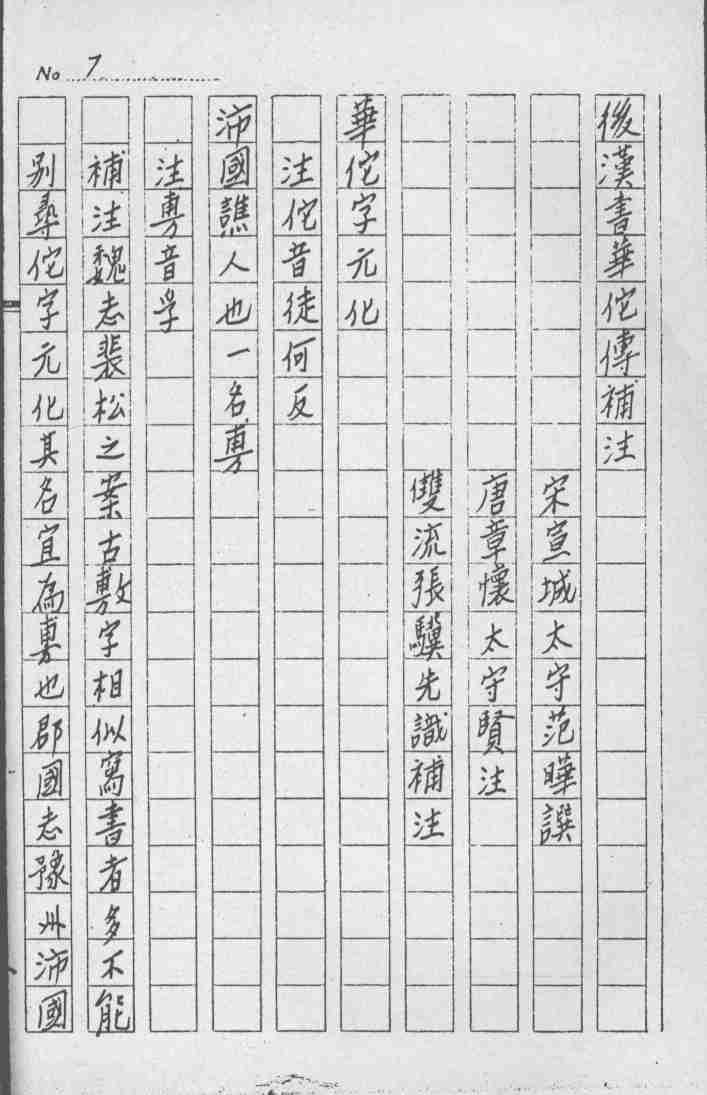 No 7
後漢書華佗傳補注
宋宣城太守范曄譔
唐章懷太守賢注
雙流張驥先識補注
華佗字元化
注佗音徒何反
沛國譙人也一名旉
注旉音孚
補注魏志裴松之案古敷字相似寫書者多不能
别尋佗字元化其名宜為旉也郡國志豫州沛國